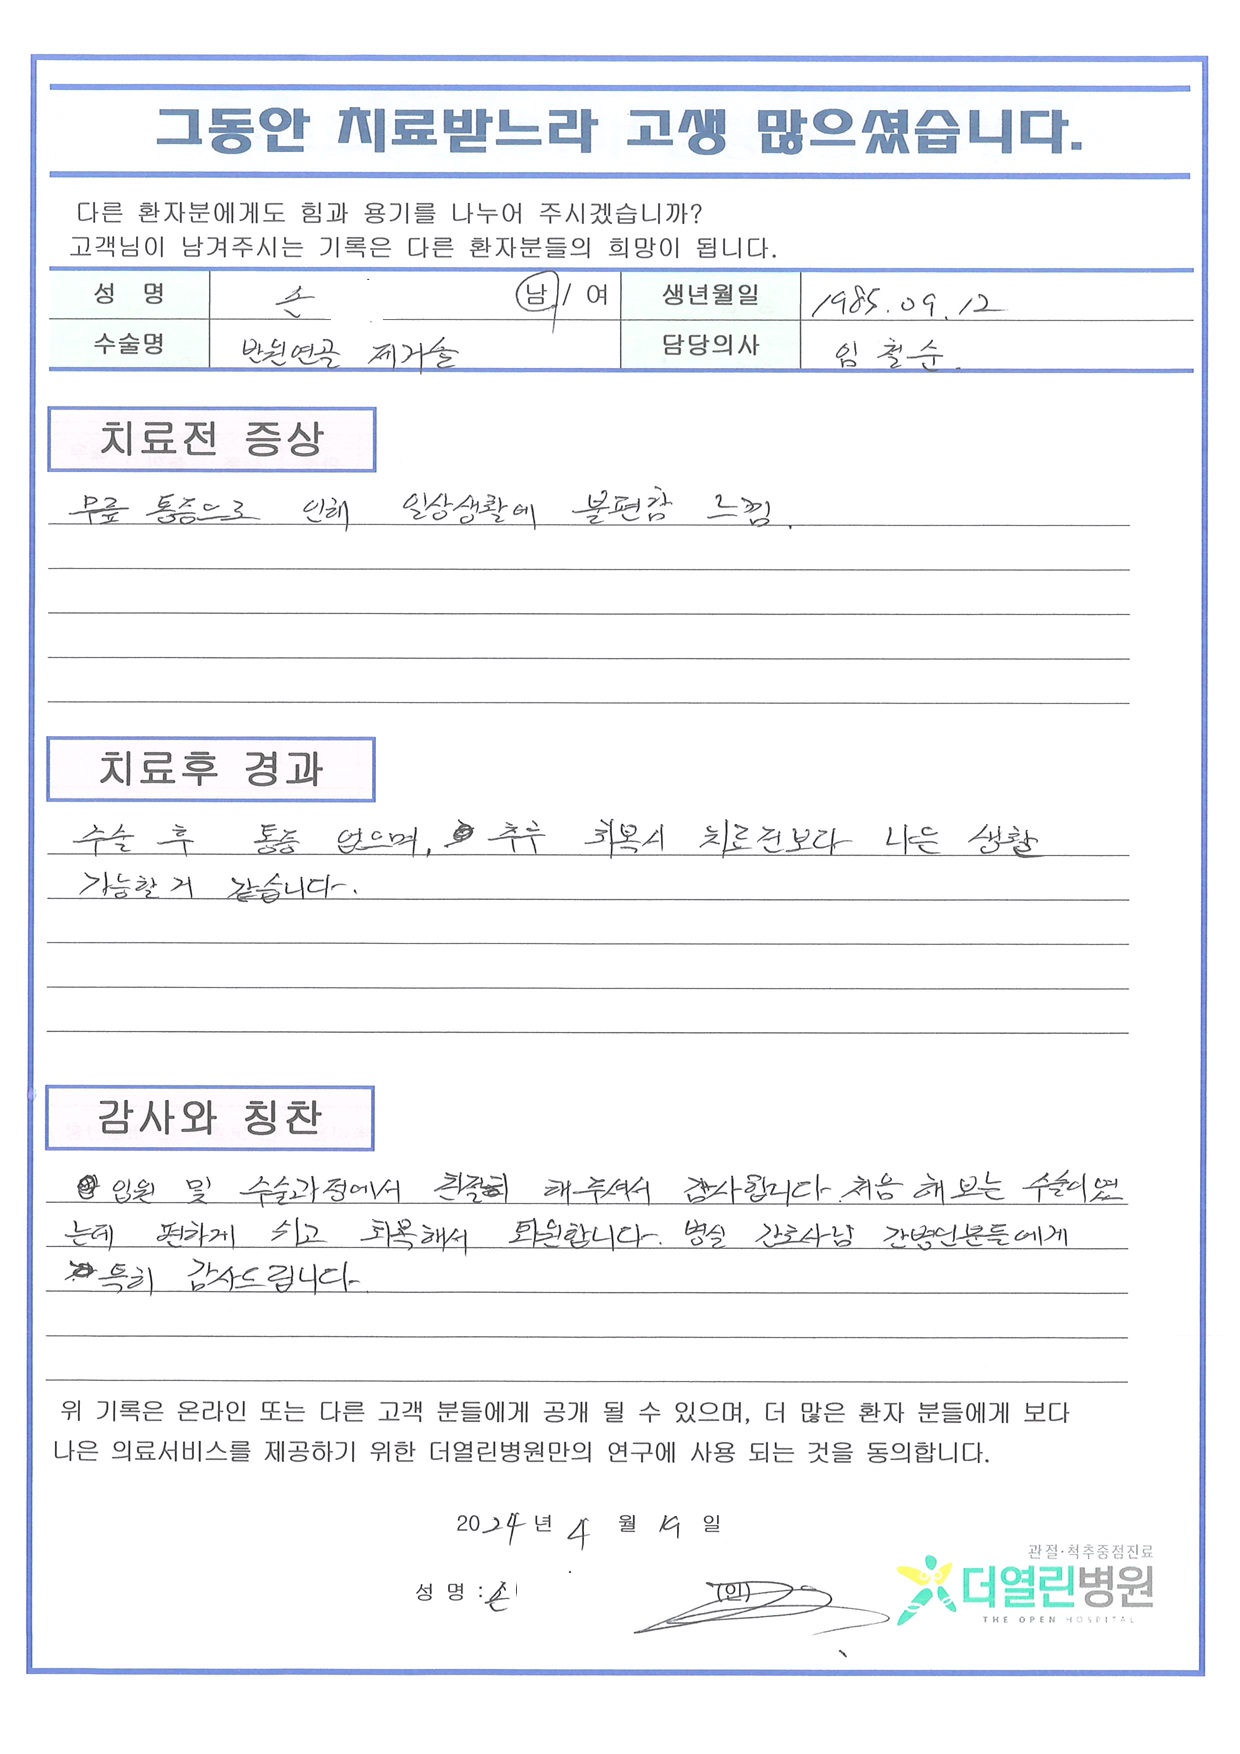 그동안 치료받느라 고생 많으셨습니다.
다른 환자분에게도 힘과 용기를 나누어 주시겠습니까?
고객님이 남겨주시는 기록은 다른 환자분들의 희망이 됩니다.
성 명 손 남 / 여 생년월일 1985.09.12
수술명 반월연골 제거술 담당의사 임철순.
치료전 증상
무릎 통증으로 인해 일상생활에 불편함 느낌.
치료후 경과
수술 후 통증 없으며, 추후 회복시 치료전보다 나은 생활
가능할거 같습니다.
감사와 칭찬
입원 및 수술과정에서 친절히 해주셔서 감사합니다. 처음 해보는 수술이였
는데 편하게 쉬고 회복해서 퇴원합니다. 병실 간호사님 간병인분들에게
특히 감사드립니다.
위 기록은 온라인 또는 다른 고객 분들에게 공개 될 수 있으며, 더 많은 환자 분들에게 보다
나은 의료서비스를 제공하기 위한 더열린병원만의 연구에 사용 되는 것을 동의합니다.
2024년 4 월 19 일
성 명 : 손 (인)
관절·척추중점진료
더열린병원
THE OPEN HOSPITAL